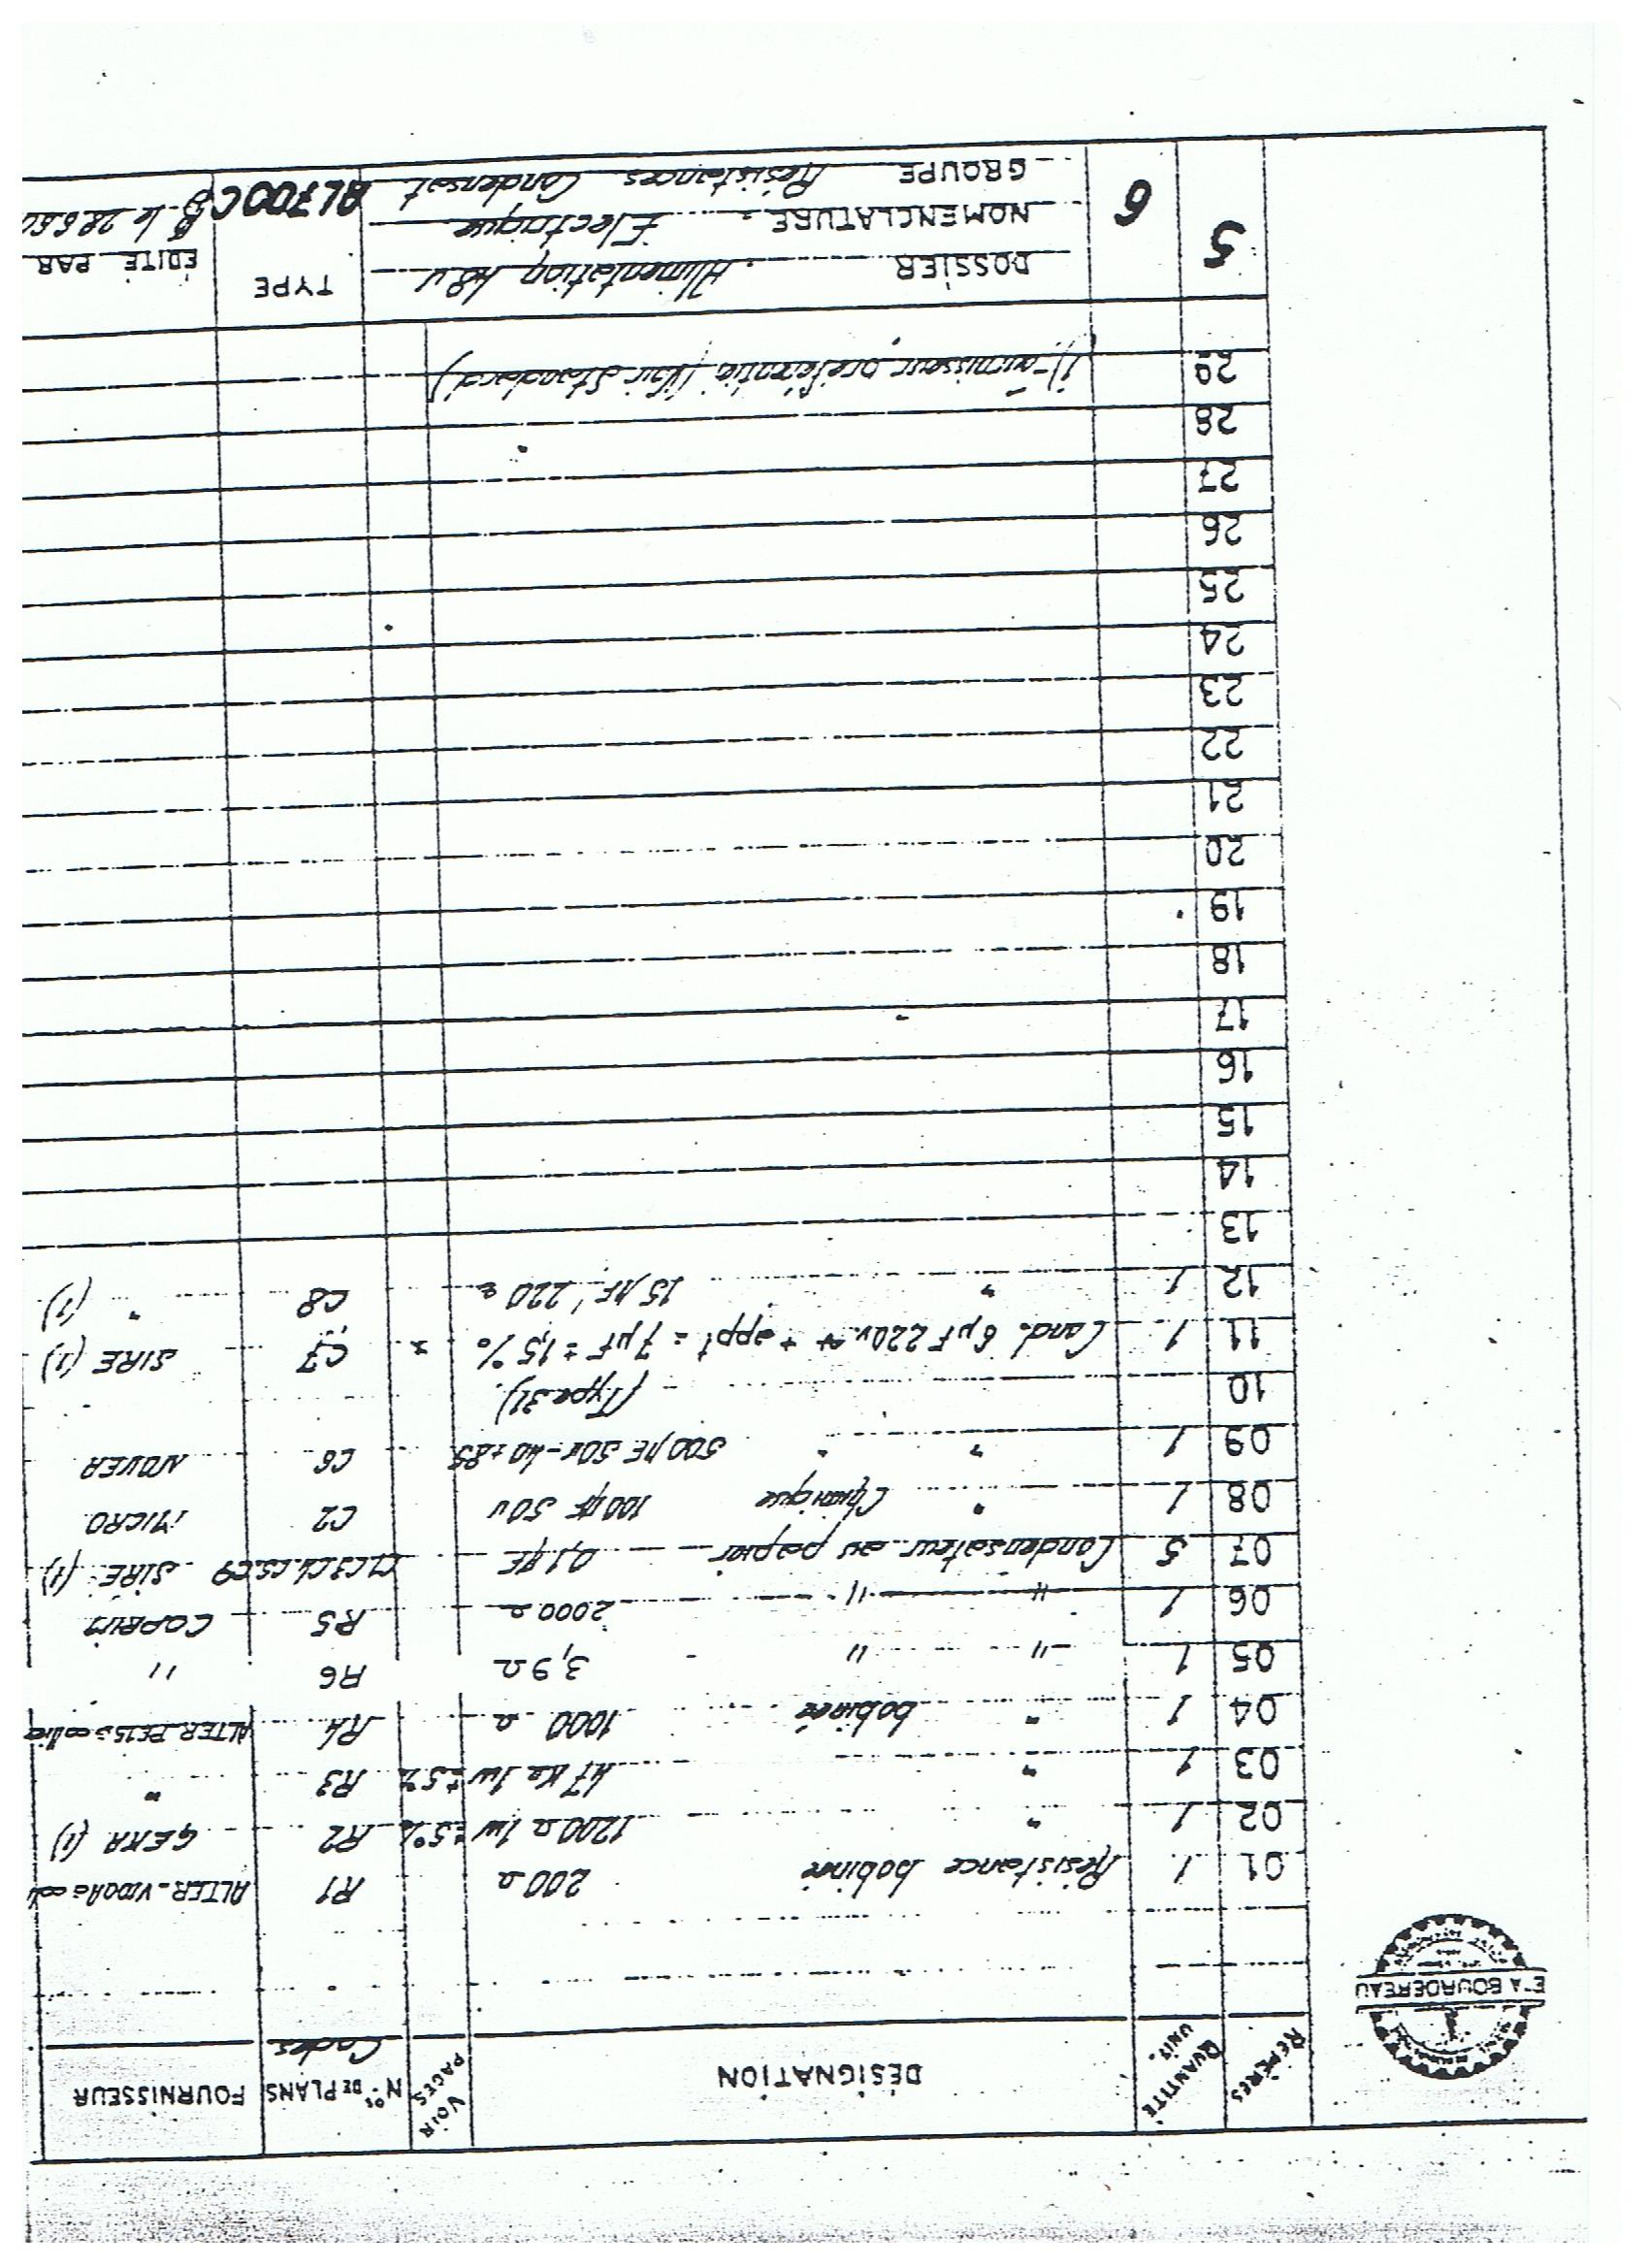 Ets A. BOURDEREAU
REPÈRES QUANTITÉ UNIT. DÉSIGNATION VOIR PAGES Nos DE PLANS Codes FOURNISSEUR
01 1 Résistance bobinée 200 Ω R1 ALTER
02 1 " 1200 Ω 1w ±5% R2 GEKA (1)
03 1 " 47 KΩ 1w ±5% R3 "
04 1 " bobinée 1000 Ω R4 ALTER
05 1 " " 3,9 Ω R6 "
06 1 " " 2000 Ω R5 COPRIM
07 5 Condensateur au papier 0,1 µF C1 C3 C4 C5 C9 SIRE (1)
08 1 " Chimique 100 µF 50v C2 MICRO
09 1 " " 500 µF 50v -40 +85 C6 NOVEA
10 (Type 31)
11 1 Cond. 6 µF 220v + appt = 7 µF ± 1,5 % * C7 SIRE (1)
12 1 " 15 µF 220 C8 " (1)
13
14
15
16
17
18
19
20
21
22
23
24
25
26
27
28
29 1) Fournisseur préférentiel (Voir Standard)
5 6 DOSSIER Alimentation 48v TYPE ÉDITÉ PAR
NOMENCLATURE Électrique AL700C B le 28.6.60
GROUPE Résistances Condensat